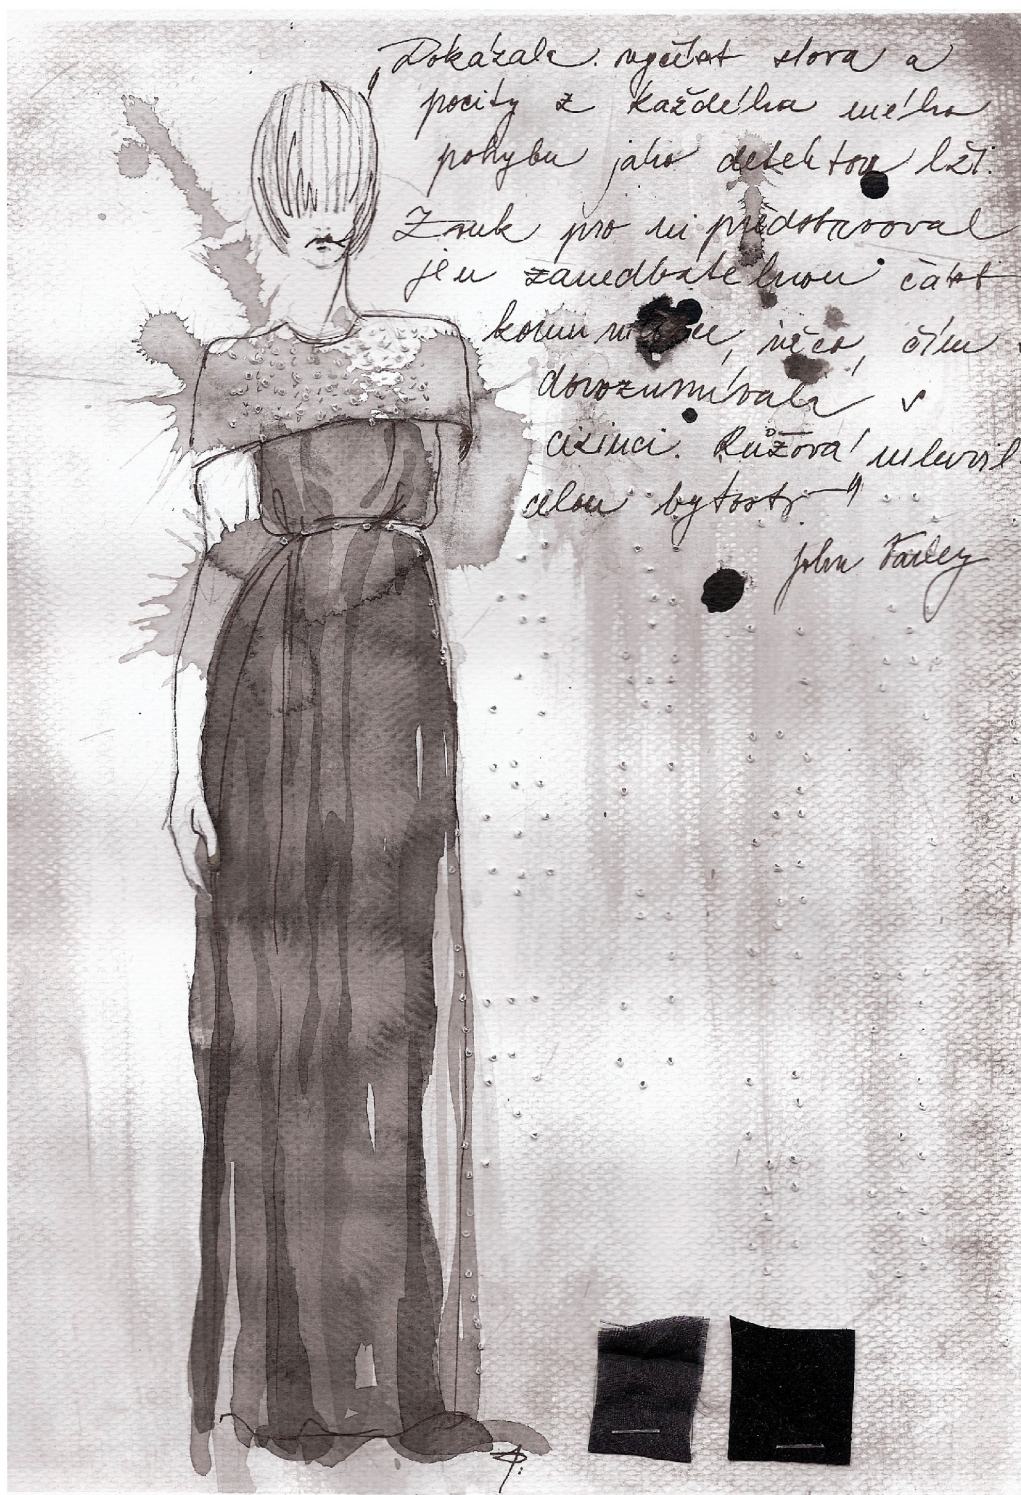 „Dokázala vyčíst slova a
pocity z každého mého
pohybu jako detektor lži.
Zvuk pro ni představoval
jen zanedbatelnou část
komunikace, něco, čím
dorozumívala s
cizinci. Růžová mluvila
celou bytostí“
John Varley